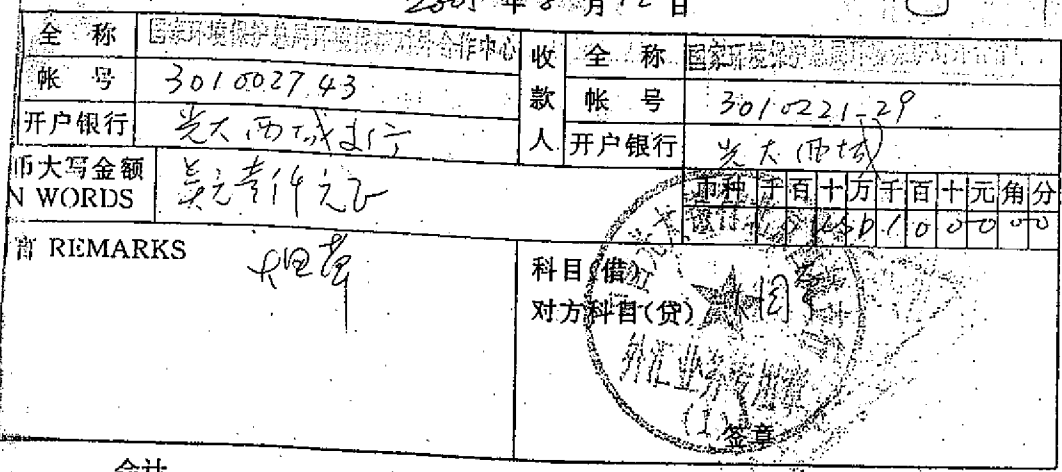 2005年8月12日
全称 国家环境保护总局环境保护对外合作中心 收款人 全称 国家环境保护总局环境保护对外合作中心
帐号 301002743 帐号 3010221-29
开户银行 光大西城支行 开户银行 光大(西城)
币大写金额 美元壹仟元正 币种 千 百 十 万 千 百 十 元 角 分
N WORDS USD 1 0 0 0 0 0
言 REMARKS
科目(借)
对方科目(贷)
外汇业务专用章
(1)
签章
会计